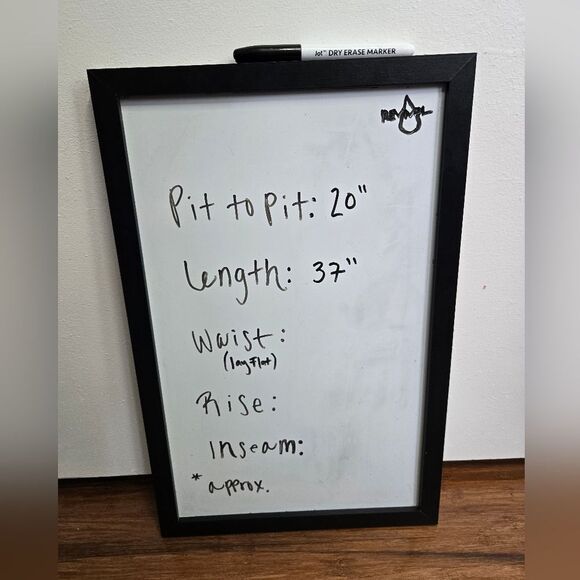 Jot™ DRY ERASE MARKER
Pit to Pit: 20"
Length: 37"
Waist:
(lay Flat)
Rise:
Inseam:
* approx.